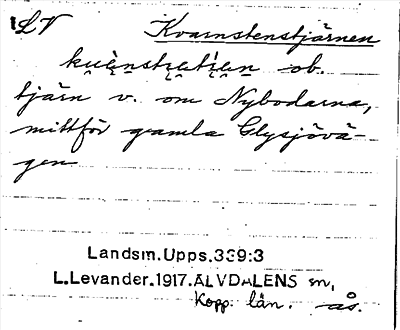 LV Kvarnstenstjärnen
ob.
tjärn v. om Nybodarna,
mittför gamla Glysjövä-
gen
Landsm.Upps.339:3
L.Levander.1917.ÄLVDALENS sn,
Kopp. län. ås.